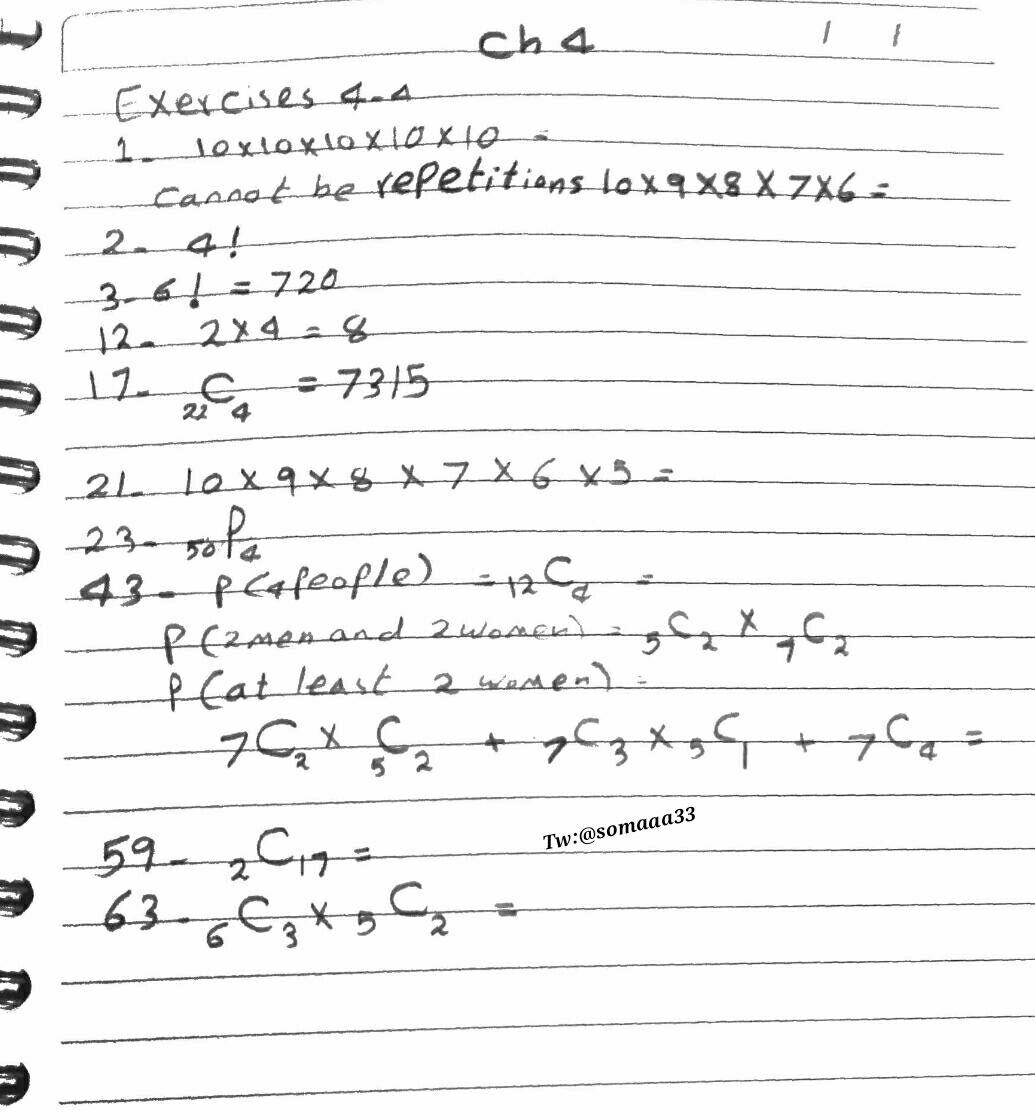 Ch 4
Exercises 4-4
1- 10x10x10x10x10 =
Cannot be repetitions 10x9x8x7x6=
2- 4!
3- 6! = 720
12- 2x4 = 8
17- 22C4 = 7315
21- 10x9x8x7x6x5=
23- 50P4
43- P(4people) = 12C4 =
P(2men and 2women) = 5C2 x 7C2
P(at least 2 women) =
7C2 x 5C2 + 7C3 x 5C1 + 7C4 =
Tw:@somaaa33
59- 2C17 =
63- 6C3 x 5C2 =